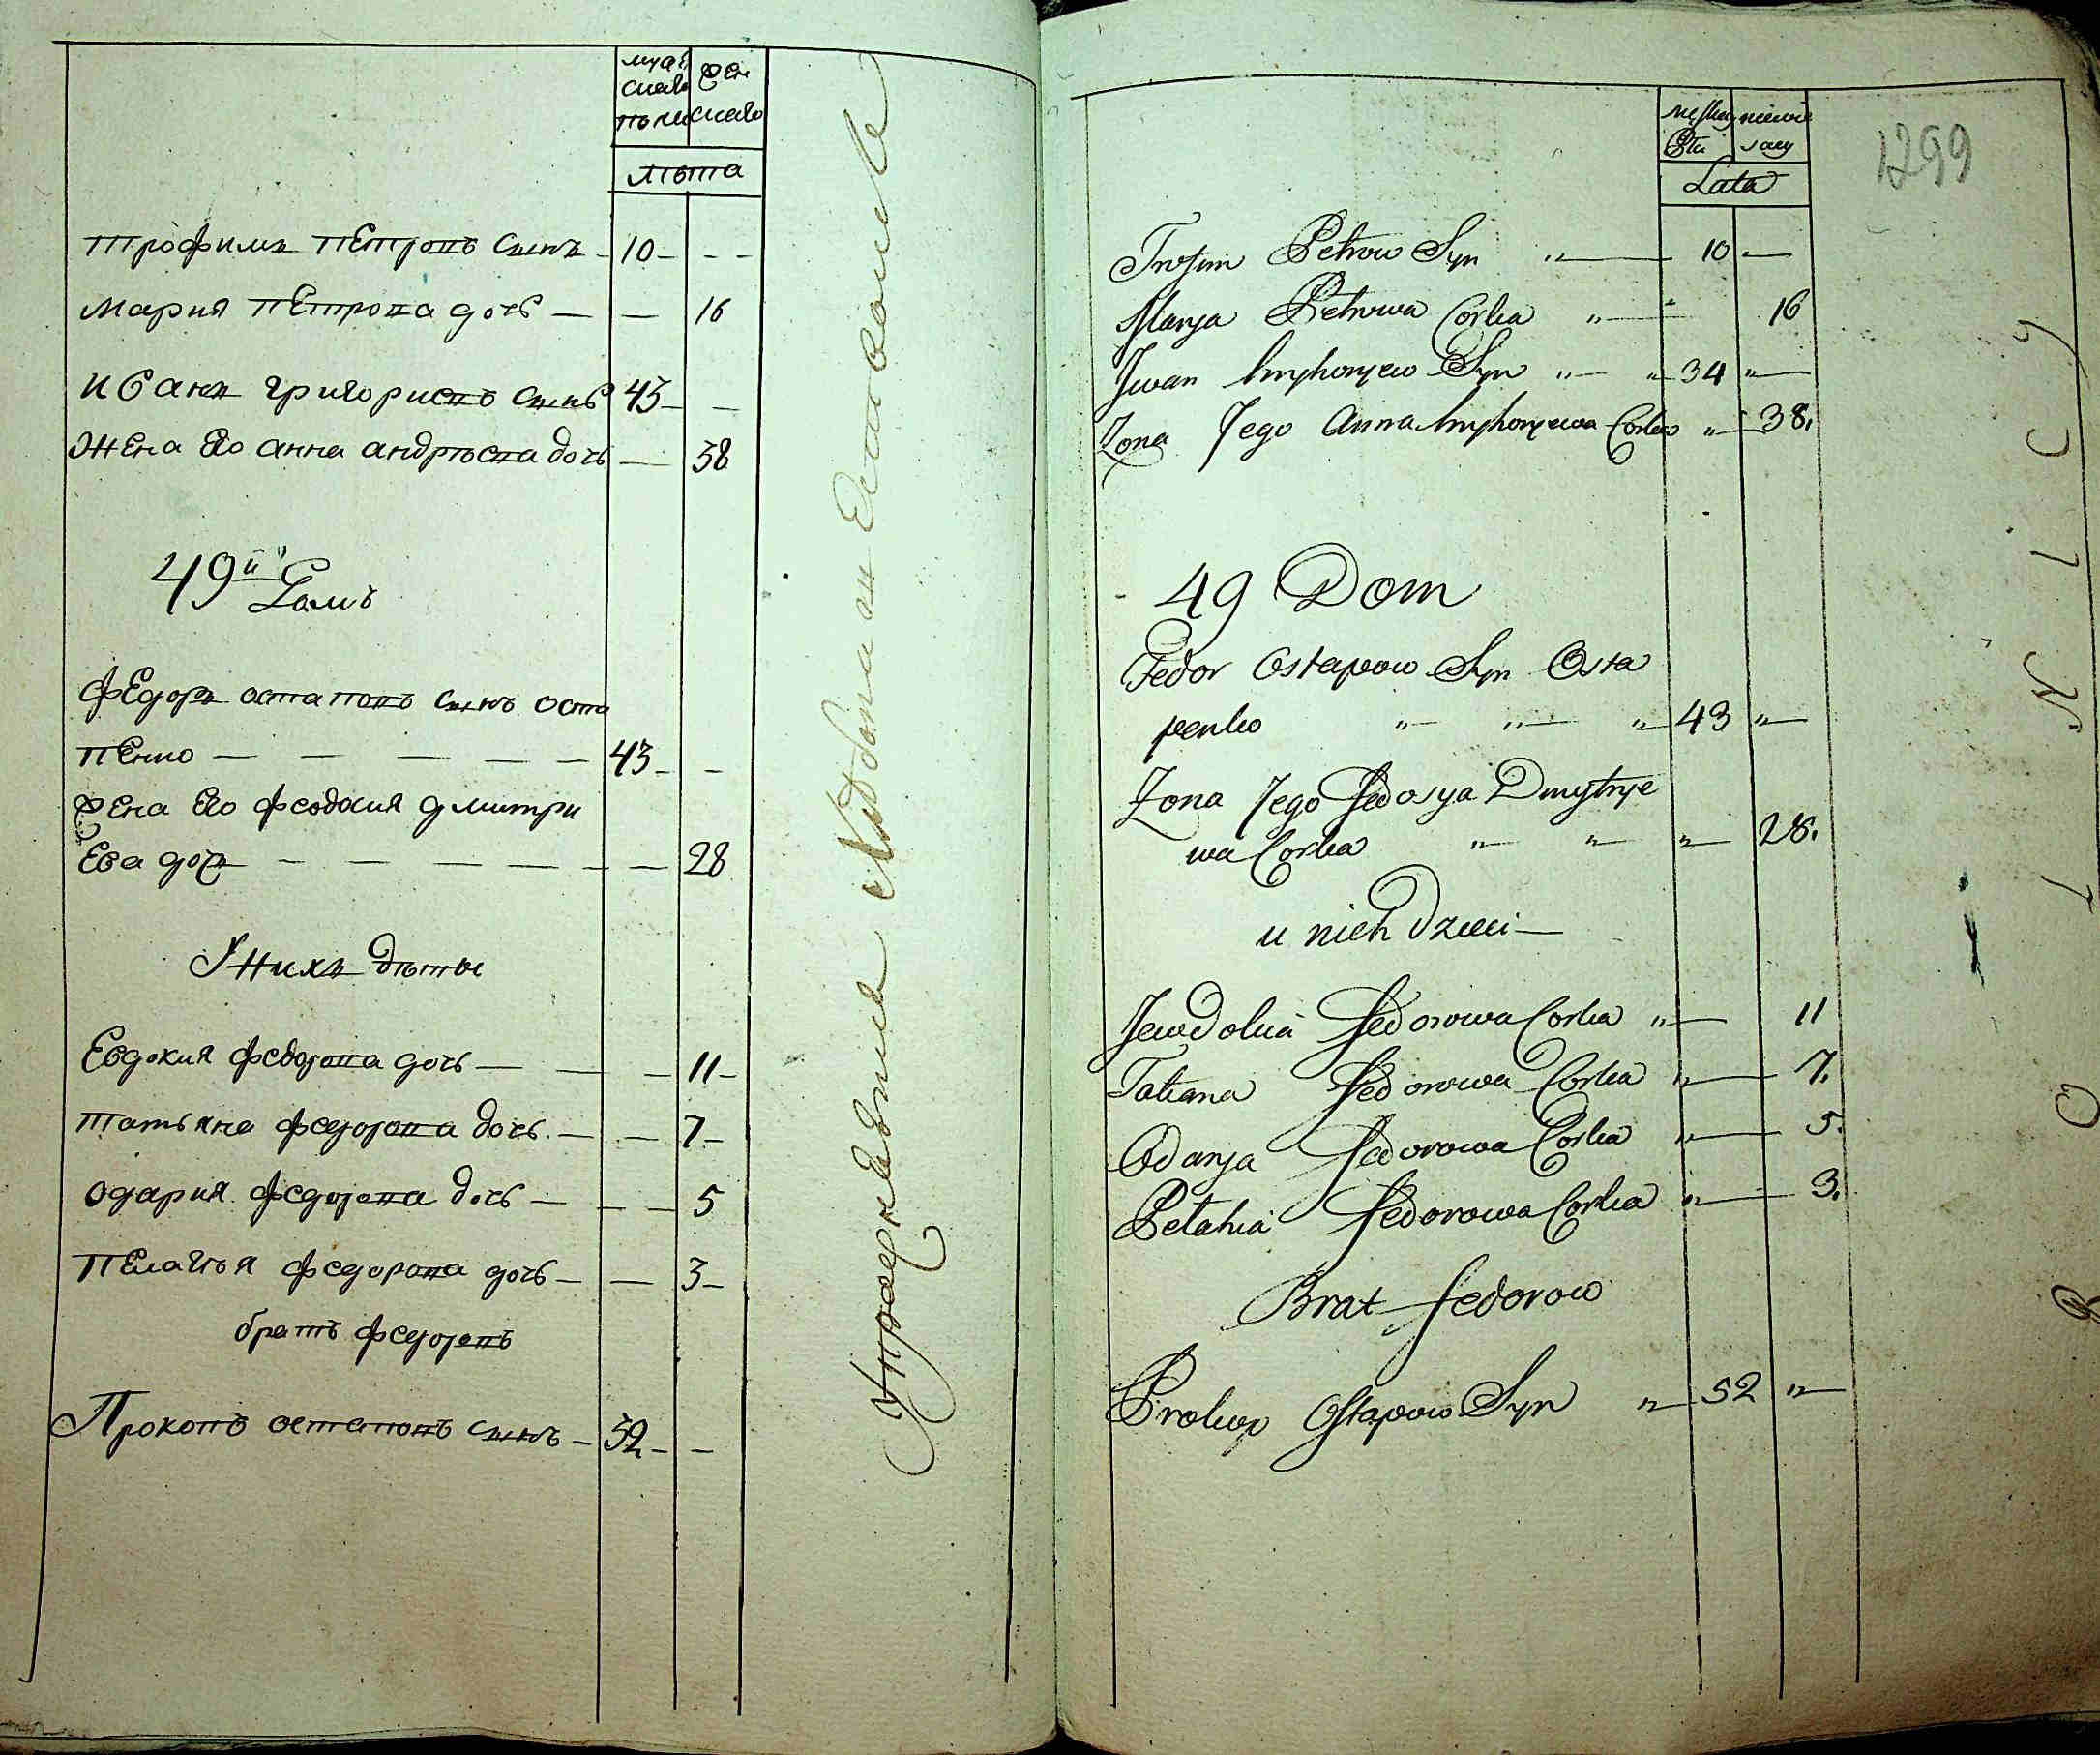 мужеска полу
женска
лѣта
Трофимъ Петровъ сынъ 10
Мария Петрова дочь 16
Иванъ Григориевъ сынъ 43
Жена Его Анна Андрѣева дочь 38
49й Домъ
Федоръ Остаповъ сынъ Оста
пенко 43
Жена Его Феодосия Дмитри
Ева дочь 28
У нихъ дѣти
Евдокия Федорова дочь 11
Татьяна Федорова дочь 7
Одария Федорова дочь 5
Пелагѣя Федорова дочь 3
братъ Федоровъ
Прокопъ Остаповъ сынъ 52
Lata
1299
Trofim Petrow Syn 10
Marya Petrowa Corka 16
Jwan Syn 34
Zona Jego Anna Corka 38.
49 Dom
Fedor Ostapow Syn Osta
penko 43
Zona Jego Fedosya Dmytrye
wa Corka 28.
u nich Dzieci
Jewdokia Fedorowa Corka 11
Tatiana Fedorowa Corka 7.
Odarya Fedorowa Corka 5.
Pelahia Fedorowa Corka 3.
Brat Fedorow
Prokop Ostapow Syn 52